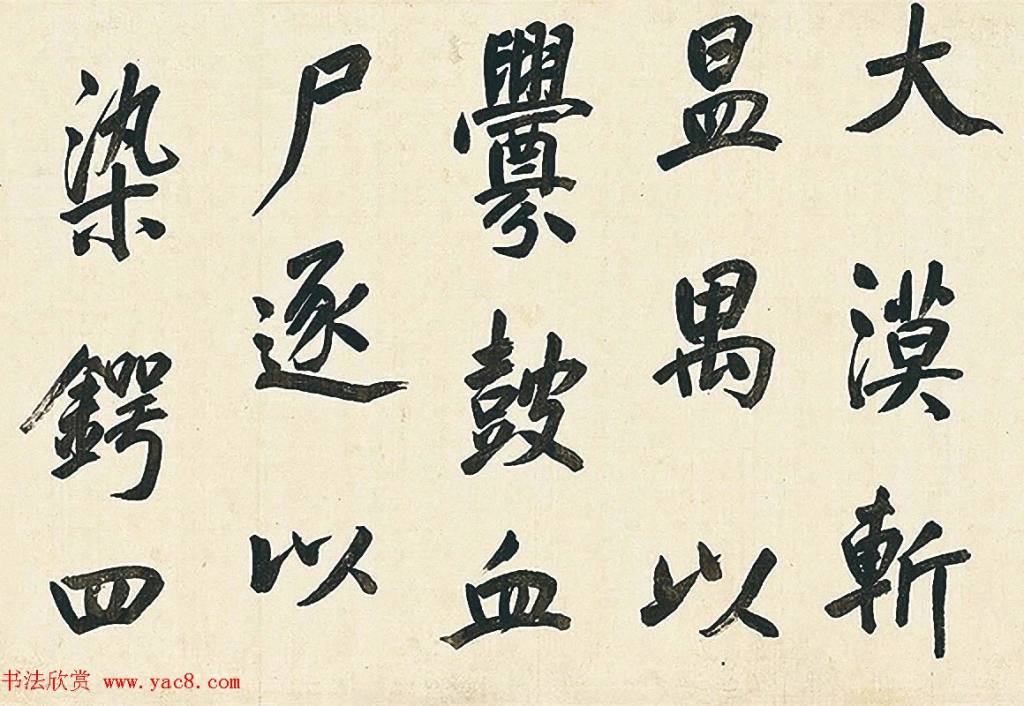 大漠斬
昷禺以
釁皷血
尸逐以
染鍔四
书法欣赏 www.yac8.com